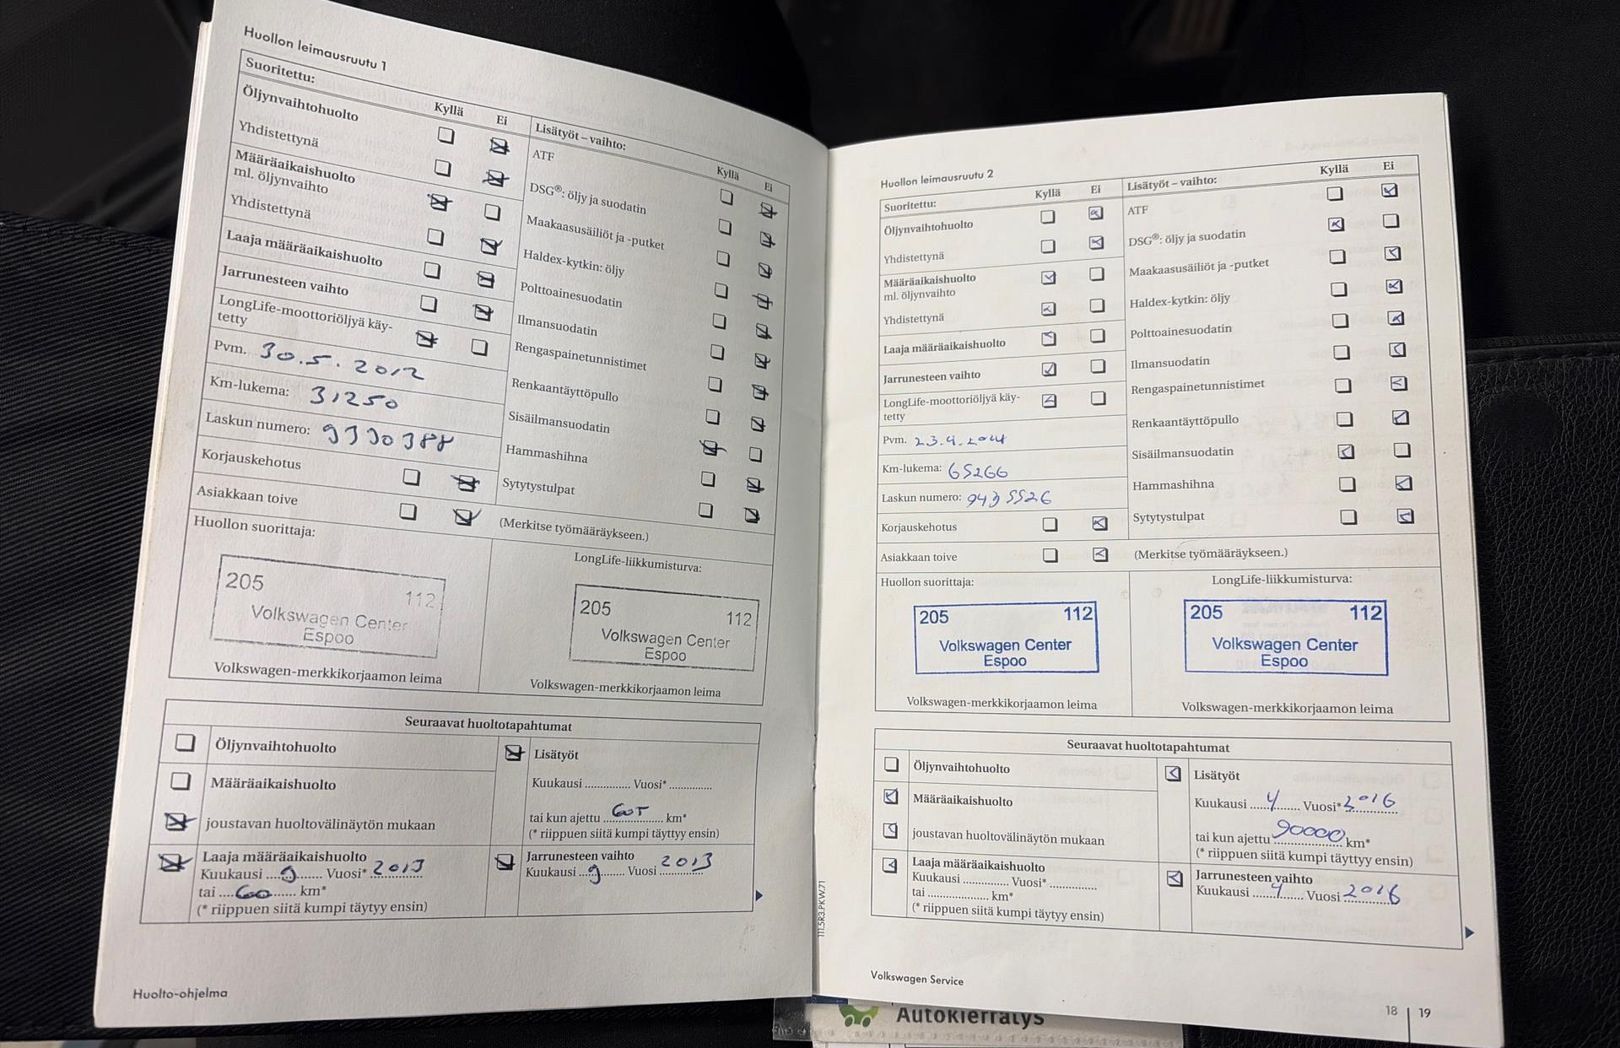 Huollon leimausruutu 1
Suoritettu:
Kyllä Ei
Öljynvaihtohuolto
Yhdistettynä
Määräaikaishuolto
ml. öljynvaihto
Yhdistettynä
Laaja määräaikaishuolto
Jarrunesteen vaihto
LongLife-moottoriöljyä käy-
tetty
Pvm. 30.5.2012
Km-lukema: 31250
Laskun numero: 9330388
Korjauskehotus
Asiakkaan toive
Lisätyöt – vaihto:
Kyllä Ei
ATF
DSG®: öljy ja suodatin
Maakaasusäiliöt ja -putket
Haldex-kytkin: öljy
Polttoainesuodatin
Ilmansuodatin
Rengaspainetunnistimet
Renkaantäyttöpullo
Sisäilmansuodatin
Hammashihna
Sytytystulpat
(Merkitse työmääräykseen.)
Huollon suorittaja:
205 112
Volkswagen Center
Espoo
Volkswagen-merkkikorjaamon leima
LongLife-liikkumisturva:
205 112
Volkswagen Center
Espoo
Volkswagen-merkkikorjaamon leima
Seuraavat huoltotapahtumat
Öljynvaihtohuolto
Määräaikaishuolto
joustavan huoltovälinäytön mukaan
Laaja määräaikaishuolto
Kuukausi ....9...... Vuosi* 2013
tai ....60....... km*
(* riippuen siitä kumpi täytyy ensin)
Lisätyöt
Kuukausi .............. Vuosi* ..............
tai kun ajettu 60T km*
(* riippuen siitä kumpi täyttyy ensin)
Jarrunesteen vaihto
Kuukausi ...9...... Vuosi 2013
Huolto-ohjelma
Huollon leimausruutu 2
Suoritettu:
Kyllä Ei
Öljynvaihtohuolto
Yhdistettynä
Määräaikaishuolto
ml. öljynvaihto
Yhdistettynä
Laaja määräaikaishuolto
Jarrunesteen vaihto
LongLife-moottoriöljyä käy-
tetty
Pvm. 23.4.2014
Km-lukema: 65266
Laskun numero: 9435526
Korjauskehotus
Asiakkaan toive
Lisätyöt – vaihto:
Kyllä Ei
ATF
DSG®: öljy ja suodatin
Maakaasusäiliöt ja -putket
Haldex-kytkin: öljy
Polttoainesuodatin
Ilmansuodatin
Rengaspainetunnistimet
Renkaantäyttöpullo
Sisäilmansuodatin
Hammashihna
Sytytystulpat
(Merkitse työmääräykseen.)
Huollon suorittaja:
205 112
Volkswagen Center
Espoo
Volkswagen-merkkikorjaamon leima
LongLife-liikkumisturva:
205 112
Volkswagen Center
Espoo
Volkswagen-merkkikorjaamon leima
Seuraavat huoltotapahtumat
Öljynvaihtohuolto
Määräaikaishuolto
joustavan huoltovälinäytön mukaan
Laaja määräaikaishuolto
Kuukausi .............. Vuosi* ..............
tai .................... km*
(* riippuen siitä kumpi täytyy ensin)
Lisätyöt
Kuukausi ....4...... Vuosi* 2016
tai kun ajettu 90000 km*
(* riippuen siitä kumpi täyttyy ensin)
Jarrunesteen vaihto
Kuukausi ....4...... Vuosi 2016
111.5R3.PKW.71
Volkswagen Service
18 | 19
Autokierrätys